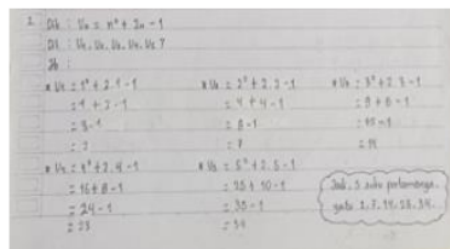 1. Dik : Un = n² + 2n - 1
Dit : U₁, U₂, U₃, U₄, U₅ ?
Jb :
• U₁ = 1² + 2.1 - 1
= 1 + 2 - 1
= 3 - 1
= 2
• U₂ = 2² + 2.2 - 1
= 4 + 4 - 1
= 8 - 1
= 7
• U₃ = 3² + 2.3 - 1
= 9 + 6 - 1
= 15 - 1
= 14
• U₄ = 4² + 2.4 - 1
= 16 + 8 - 1
= 24 - 1
= 23
• U₅ = 5² + 2.5 - 1
= 25 + 10 - 1
= 35 - 1
= 34
Jadi, 5 suku pertamanya
yaitu 2, 7, 14, 23, 34.